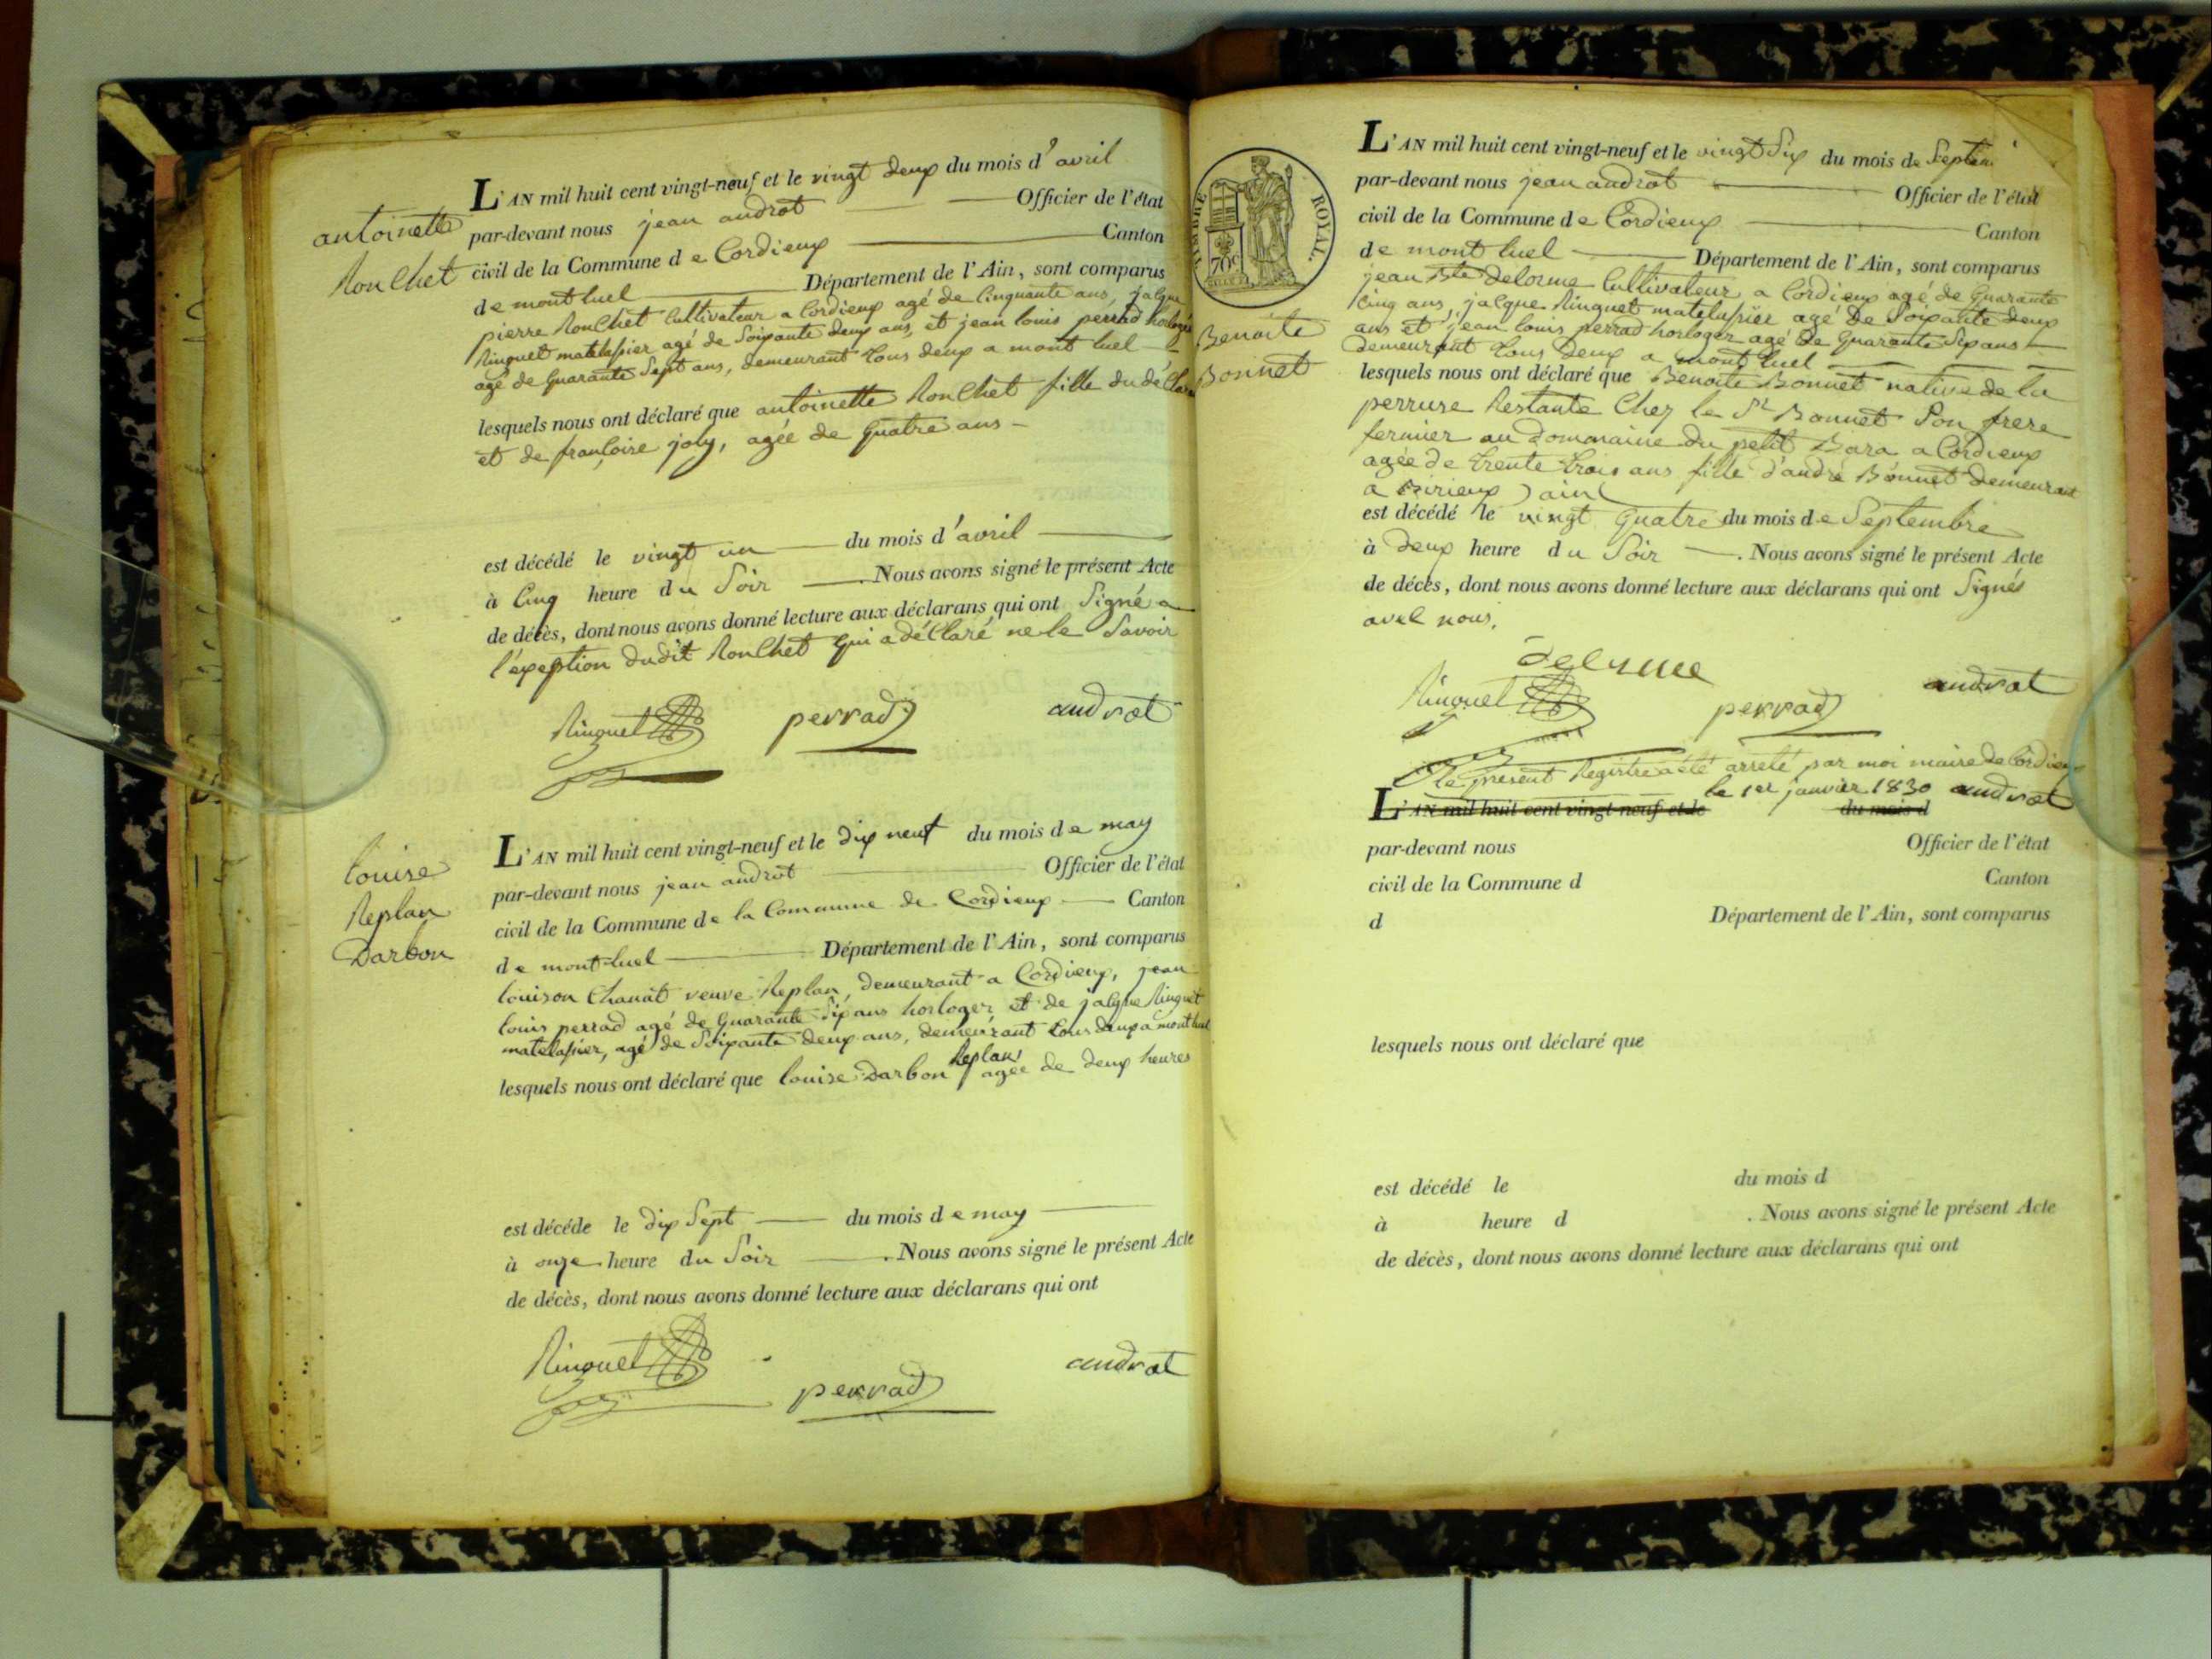 antoinette
Ronchet
L'AN mil huit cent vingt-neuf et le vingt deux du mois d'avril
par-devant nous jean androt Officier de l'état
civil de la Commune de Cordieux Canton
de montluel Département de l'Ain, sont comparus
pierre Ronchet Cultivateur a Cordieux agé de Cinquante ans, jalque
Ringuet matelassier agé de Soixante deux ans, et jean louis perrad horloger
agé de Quarante Sept ans, demeurant tous deux a mont luel
lesquels nous ont déclaré que antoinette Ronchet fille du déclarant
et de françoise joly, agée de Quatre ans -
est décédé le vingt un du mois d'avril
à Cinq heure du Soir . Nous avons signé le présent Acte
de décès, dont nous avons donné lecture aux déclarans qui ont Signé a
l'exeption dudit Ronchet qui a déclaré ne le Savoir
Ringuet perrad androt
louise
Replan
Darbon
L'AN mil huit cent vingt-neuf et le dix neuf du mois de may
par-devant nous jean androt Officier de l'état
civil de la Commune de la Commune de Cordieux Canton
de montluel Département de l'Ain, sont comparus
louison Chanât veuve Replan, demeurant a Cordieux, jean
louis perrad agé de Quarante Six ans horloger et de jalque Ringuet
matelassier, agé de Soixante deux ans, demeurant tous deux a mont luel
lesquels nous ont déclaré que louise Darbon Replan agée de deux heures
est décéde le dix Sept du mois de may
à onze heure du Soir . Nous avons signé le présent Acte
de décès, dont nous avons donné lecture aux déclarans qui ont
Ringuet perrad androt
TIMBRE ROYAL.
70c
Benoite
Bonnet
L'AN mil huit cent vingt-neuf et le vingt Six du mois de Septem
par-devant nous jean androt Officier de l'état
civil de la Commune de Cordieux Canton
de mont luel Département de l'Ain, sont comparus
jean Bte Delorme Cultivateur a Cordieux agé de Quarante
Cinq ans, jalque Ringuet matelassier agé De Soixante deux
ans et jean louis perrad horloger agé De Quarante Six ans
demeurant tous deux a mont luel
lesquels nous ont déclaré que Benoite Bonnet native de la
perruse Restante Chez le Sr Bonnet Son frere
fermier au Dommaine du petit Bara a Cordieux
agée de trente trois ans fille d'andré Bonnet demeurant
a Birieux ) ain (
est décédé le vingt Quatre du mois de Septembre
à deux heure du Soir . Nous avons signé le présent Acte
de décès, dont nous avons donné lecture aux déclarans qui ont Signés
avec nous.
Delorme
Ringuet perrad androt
le present Registre a été arrété par moi maire de Cordieux
le 1er janvier 1830 androt
L'AN mil huit cent vingt-neuf et le du mois d
par-devant nous Officier de l'état
civil de la Commune d Canton
d Département de l'Ain, sont comparus
lesquels nous ont déclaré que
est décédé le du mois d
à heure d . Nous avons signé le présent Acte
de décès, dont nous avons donné lecture aux déclarans qui ont